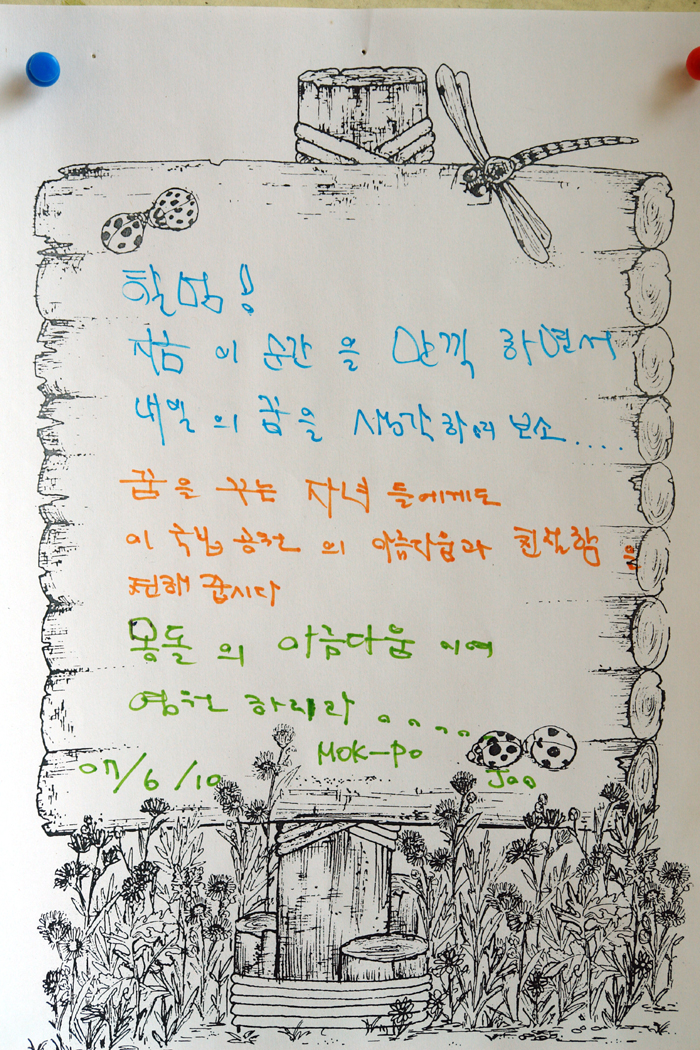 할멈!
지금 이 순간 을 만끽 하면서
내일 의 꿈을 생각하여 보소....
꿈을 꾸는 자녀 들에게도
이 국립 공원 의 아름다움과 친절함 을
전해 줍시다
몽돌 의 아름다움 이여
영원 하리라 .....
07/6/10 MOK-PO Jao